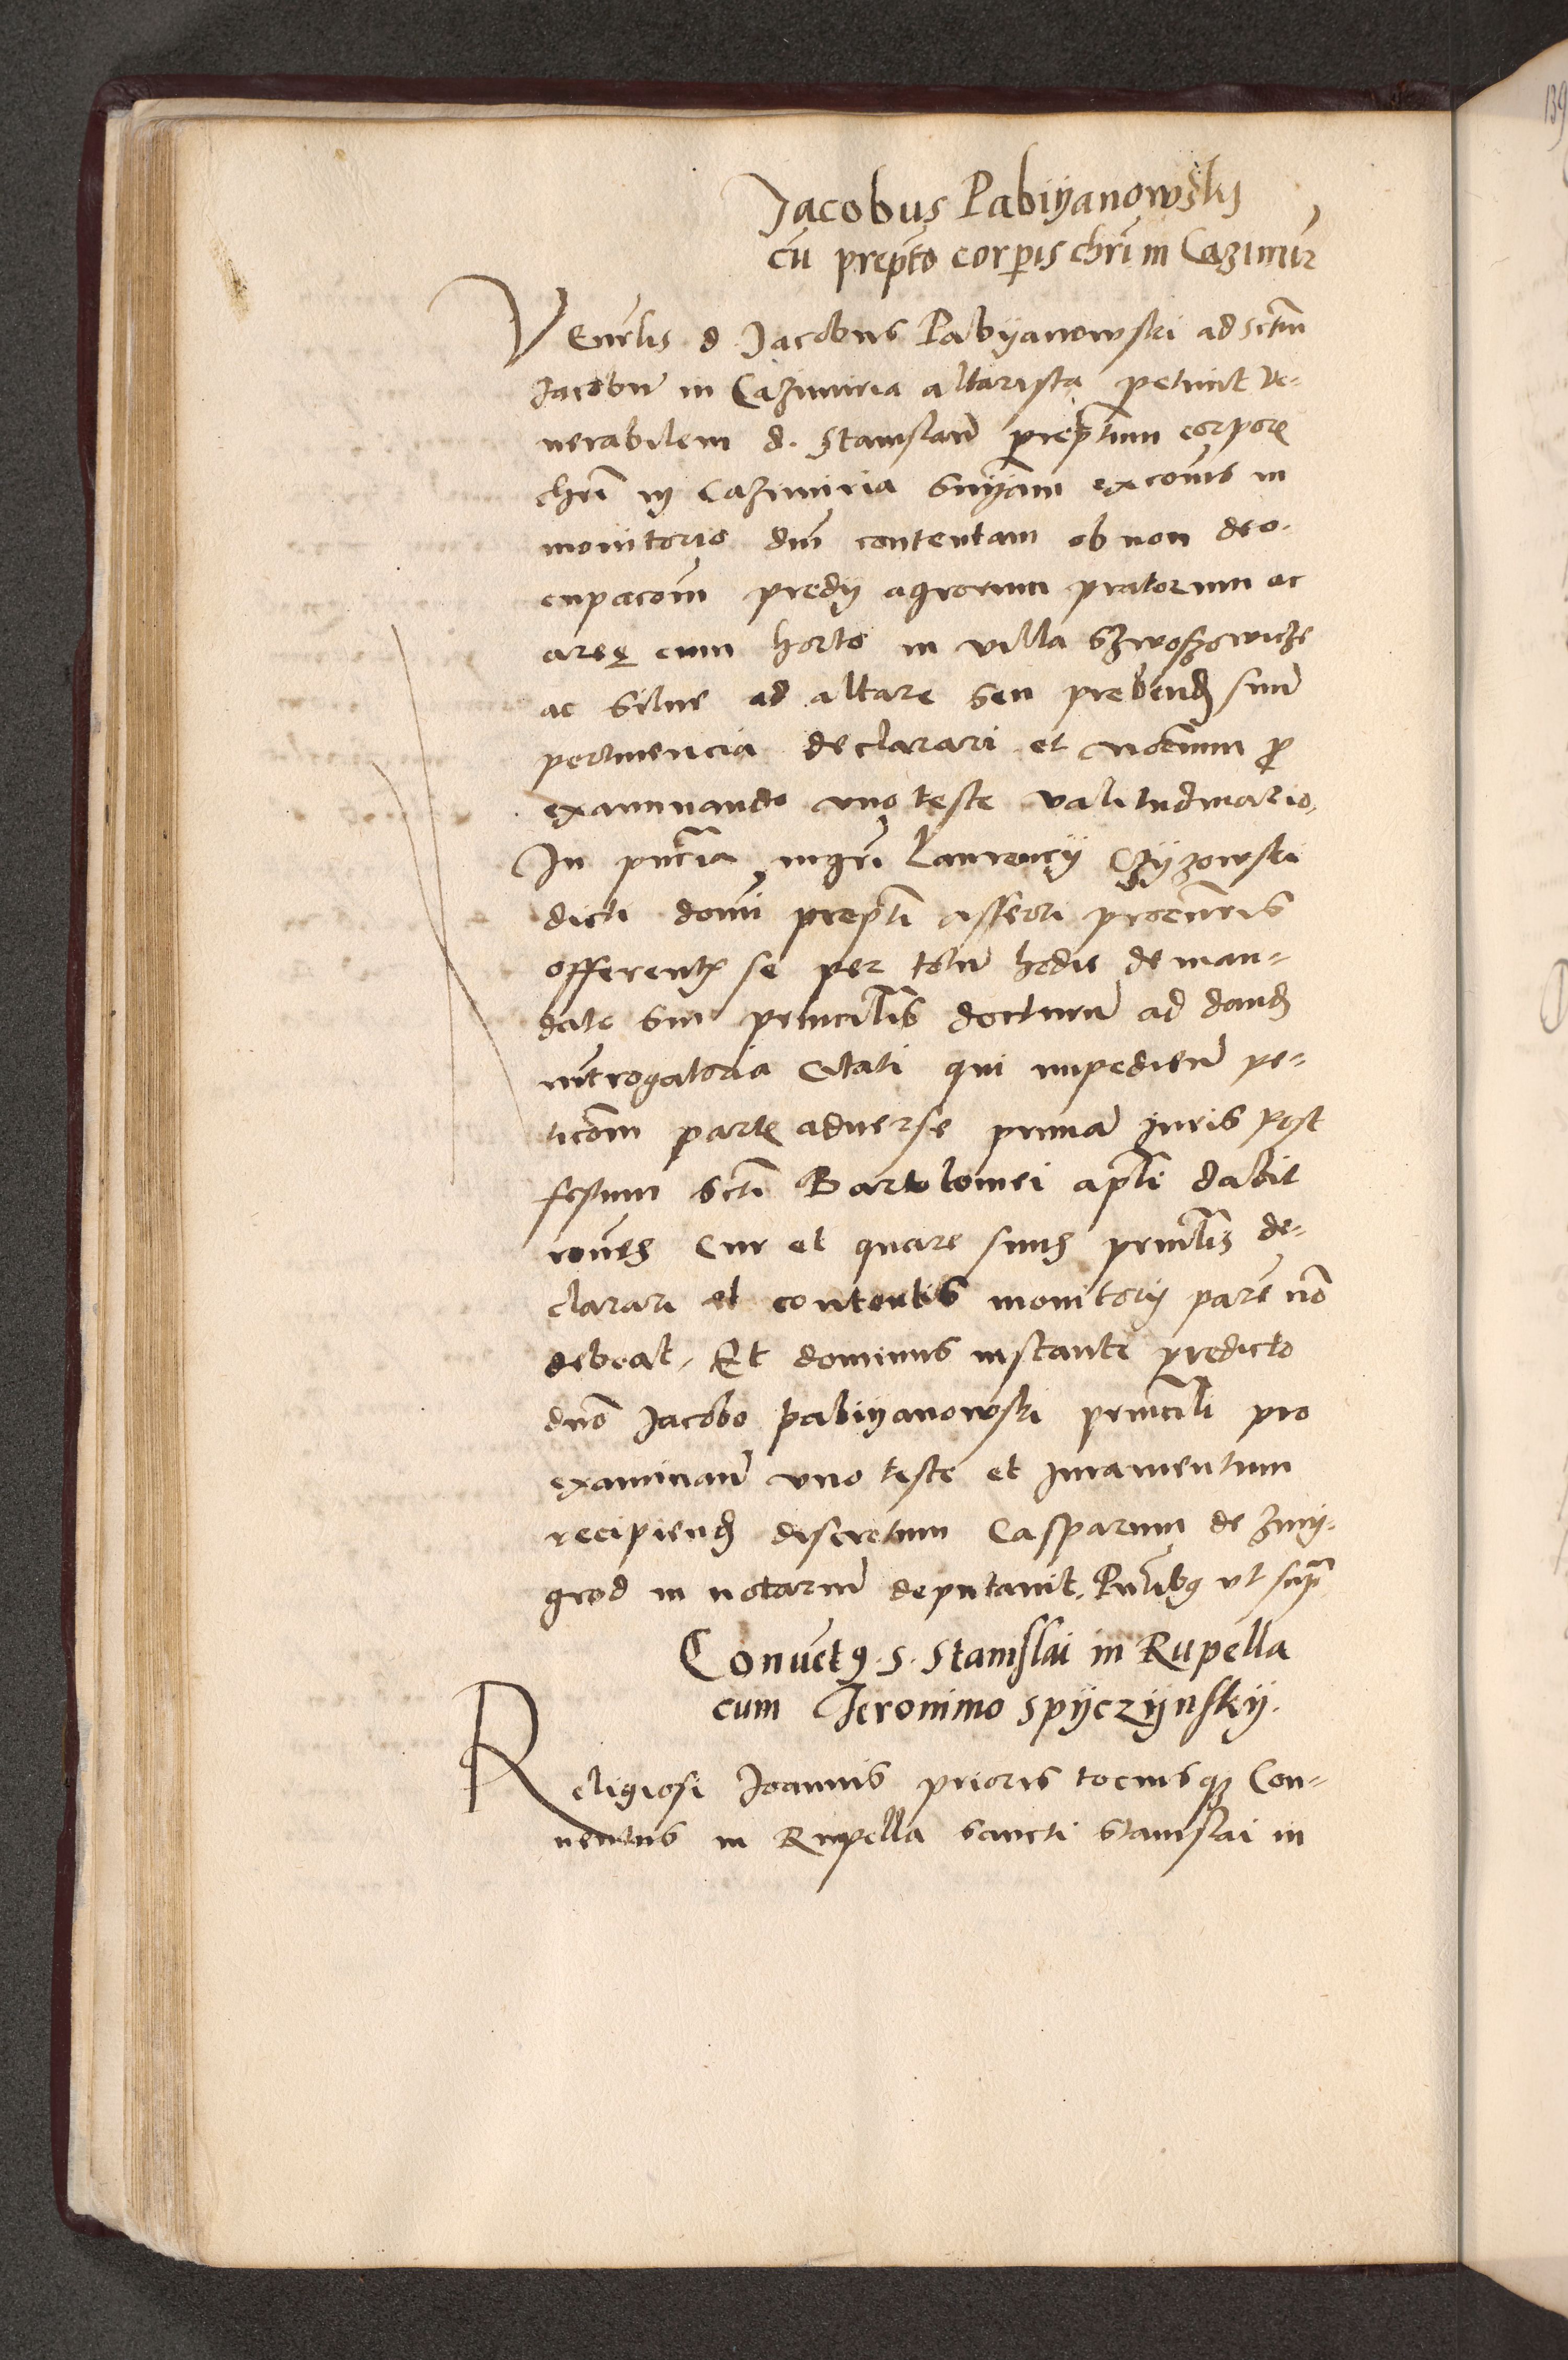 Jacobus Pabiyanowsky
cū prepto corpis chri in Cazimir
Venrlis d Jacobus Pabyanowski ad sctm
Jacobū in Cazimiria altarista petiuit Ve-
nerabilem d. Stanislaū preptum corporis
chri in Cazimiria snyam excois in
monitorio dni contentam ob non deo-
cupacom predy agrorum pratorum ac
aree cum horto in villa
ac silue ad altare seu prebend suū
pertinencia declarari et notarium p
examinando uno teste valitudinario,
In pncia mgri Laurency Czyzowski
dicti domi prepti asserti procuris
offerent se per totū hodie de man-
dato sui principalis docturū ad dand
interrogatoria citati qui impediend pe-
ticom partis aduerse prima Juris post
festum scti Bartolomei apli dabit
roues Cur et quare suus princlis de-
clarari et contentis monitorij parere nō
debeat, Et dominus instante predicto
dno Jacobo Pabiyanowski princli pro
examinand uno teste et iuramentum
recipiend discretum Casparum de Zmy-
grod in notariū deputauit. Pntibus ut supra
Conuetus S. Stanislai in Rupella
cum Jeronimo Spyczynsky.
Religiosi Joannis prioris tociusque Con-
uentus in Rupella sancti Stanislai in
139